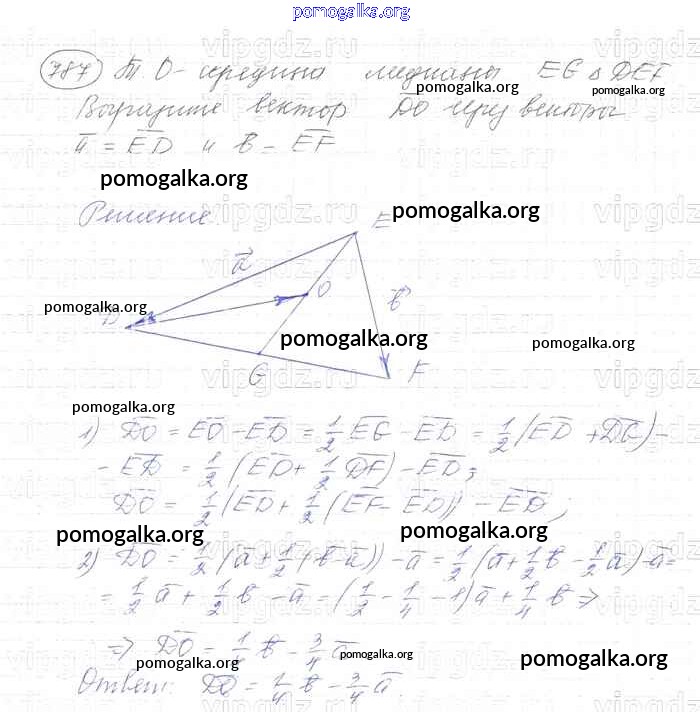 pomogalka.org
787 т. O - середина медианы EG △ DEF
Выразите вектор DO через векторы
a = ED и b = EF
pomogalka.org
pomogalka.org
Решение.
pomogalka.org
E
a
O
b
pomogalka.org
D
pomogalka.org
pomogalka.org
G
F
pomogalka.org
1) DO = EO - ED = 1/2 EG - ED = 1/2 (ED + DG) -
- ED = 1/2 (ED + 1/2 DF) - ED;
DO = 1/2 (ED + 1/2 (EF - ED)) - ED;
pomogalka.org
pomogalka.org
2) DO = 1/2 (a + 1/2 (b - a)) - a = 1/2 (a + 1/2 b - 1/2 a) - a =
= 1/2 a + 1/2 b - a = (1/2 - 1/4 - 1) a + 1/4 b ⇒
⇒ DO = 1/4 b - 3/4 a
pomogalka.org
pomogalka.org
pomogalka.org
Ответ: DO = 1/4 b - 3/4 a.
pomogalka.org